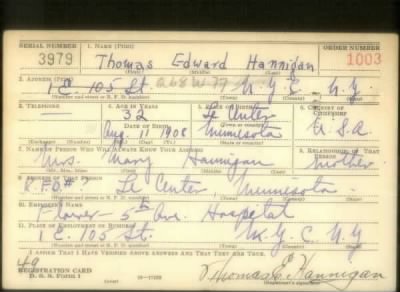 SERIAL NUMBER 1. NAME (Print) ORDER NUMBER
3979 Thomas Edward Hannigan 1003
(First) (Middle) (Last)
2. ADDRESS (Print)
1 E. 105 St. 268 W 77 N.Y.C. N.Y.
(Number and street or R. F. D. number) (Town) (County) (State)
3. TELEPHONE 4. AGE IN YEARS 5. PLACE OF BIRTH 6. COUNTRY OF CITIZENSHIP
— 32 Le Center
DATE OF BIRTH (Town or county)
Aug. 11 1908 Minnesota U.S.A
(Exchange) (Number) (Mo.) (Day) (Yr.) (State or country)
7. NAME OF PERSON WHO WILL ALWAYS KNOW YOUR ADDRESS 8. RELATIONSHIP OF THAT PERSON
Mrs. Mary Hannigan Mother
(Mr., Mrs., Miss) (First) (Middle) (Last)
9. ADDRESS OF THAT PERSON
R.F.D.# Le Center, Minnesota
(Number and street or R. F. D. number) (Town) (County) (State)
10. EMPLOYER'S NAME
Flower - 5th Ave. Hospital
11. PLACE OF EMPLOYMENT OR BUSINESS
1 E. 105 St. N.Y.C. N.Y
(Number and street or R. F. D. number) (Town) (County) (State)
I AFFIRM THAT I HAVE VERIFIED ABOVE ANSWERS AND THAT THEY ARE TRUE.
49
REGISTRATION CARD
D. S. S. Form 1 (over) Thomas E. Hannigan
(Registrant's signature)